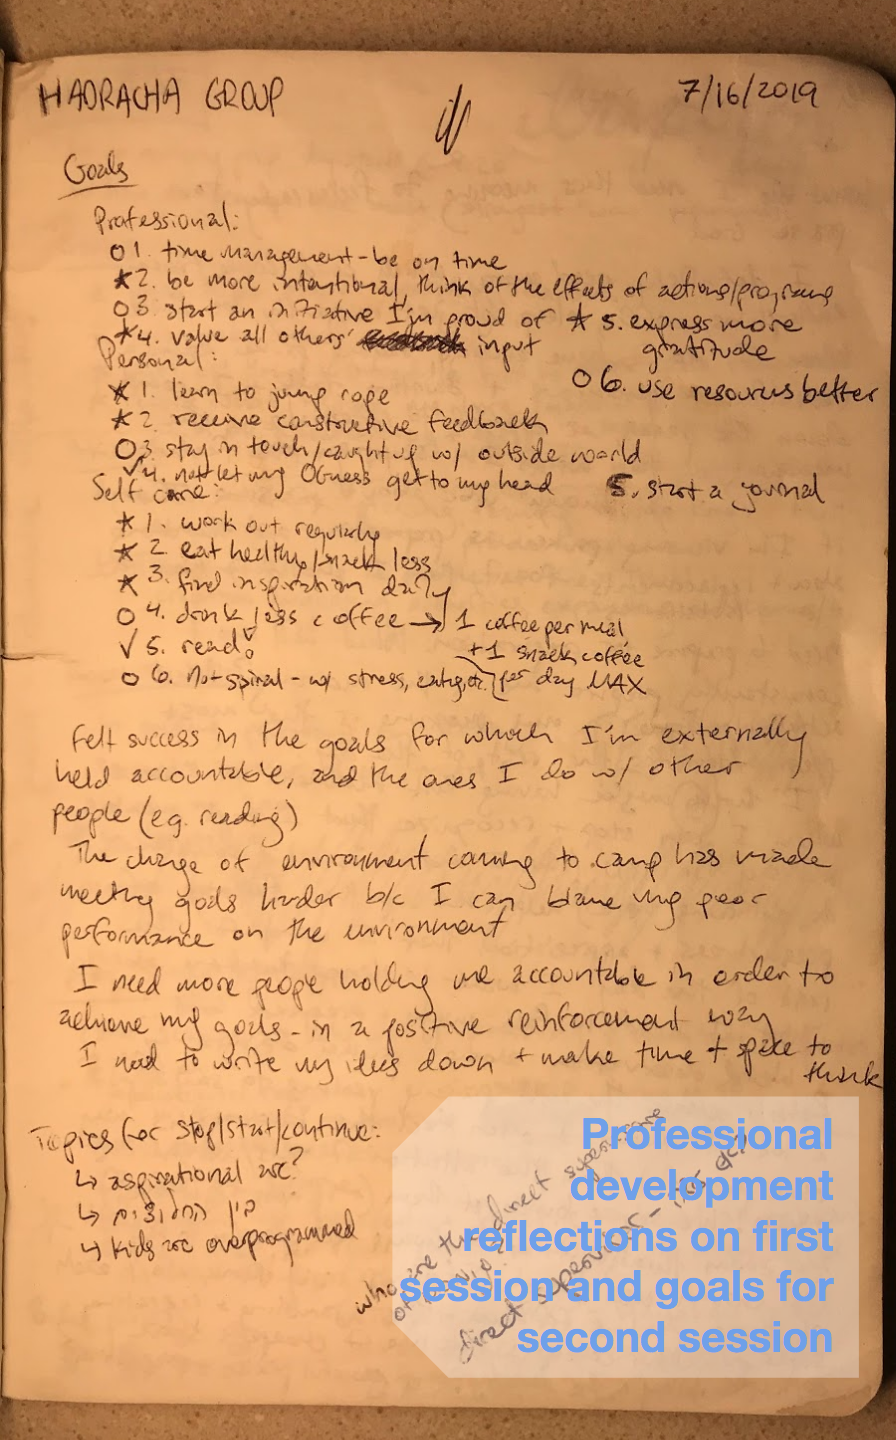 HADRACHA GROUP
7/16/2019
Goals
Professional:
O 1. time management - be on time
★ 2. be more intentional, think of the effects of actions/programs
O 3. start an initiative I'm proud of
★ 4. value all others' input
★ 5. express more
gratitude
O 6. use resources better
Personal:
★ 1. learn to jump rope
★ 2. receive constructive feedback
O 3. stay in touch/caught up w/ outside world
✓ 4. not let my OGness get to my head
5. start a journal
Self care:
★ 1. work out regularly
★ 2. eat healthy/snack less
★ 3. find inspiration daily
O 4. drink less coffee → 1 coffee per meal
+1 snack coffee
per day MAX
✓ 5. read!
O 6. not spiral - w/ stress, eating, etc.
Felt success in the goals for which I'm externally
held accountable, and the ones I do w/ other
people (e.g. reading)
The change of environment coming to camp has made
meeting goals harder b/c I can blame my poor
performance on the environment
I need more people holding me accountable in order to
achieve my goals - in a positive reinforcement way
I need to write my ideas down + make time + space to
think
Topics for stop/start/continue:
↳ aspirational arc?
↳ בין החלוצים
↳ kids are overprogrammed
who are the direct supervisors
of
direct supervisor -
Professional
development
reflections on first
session and goals for
second session